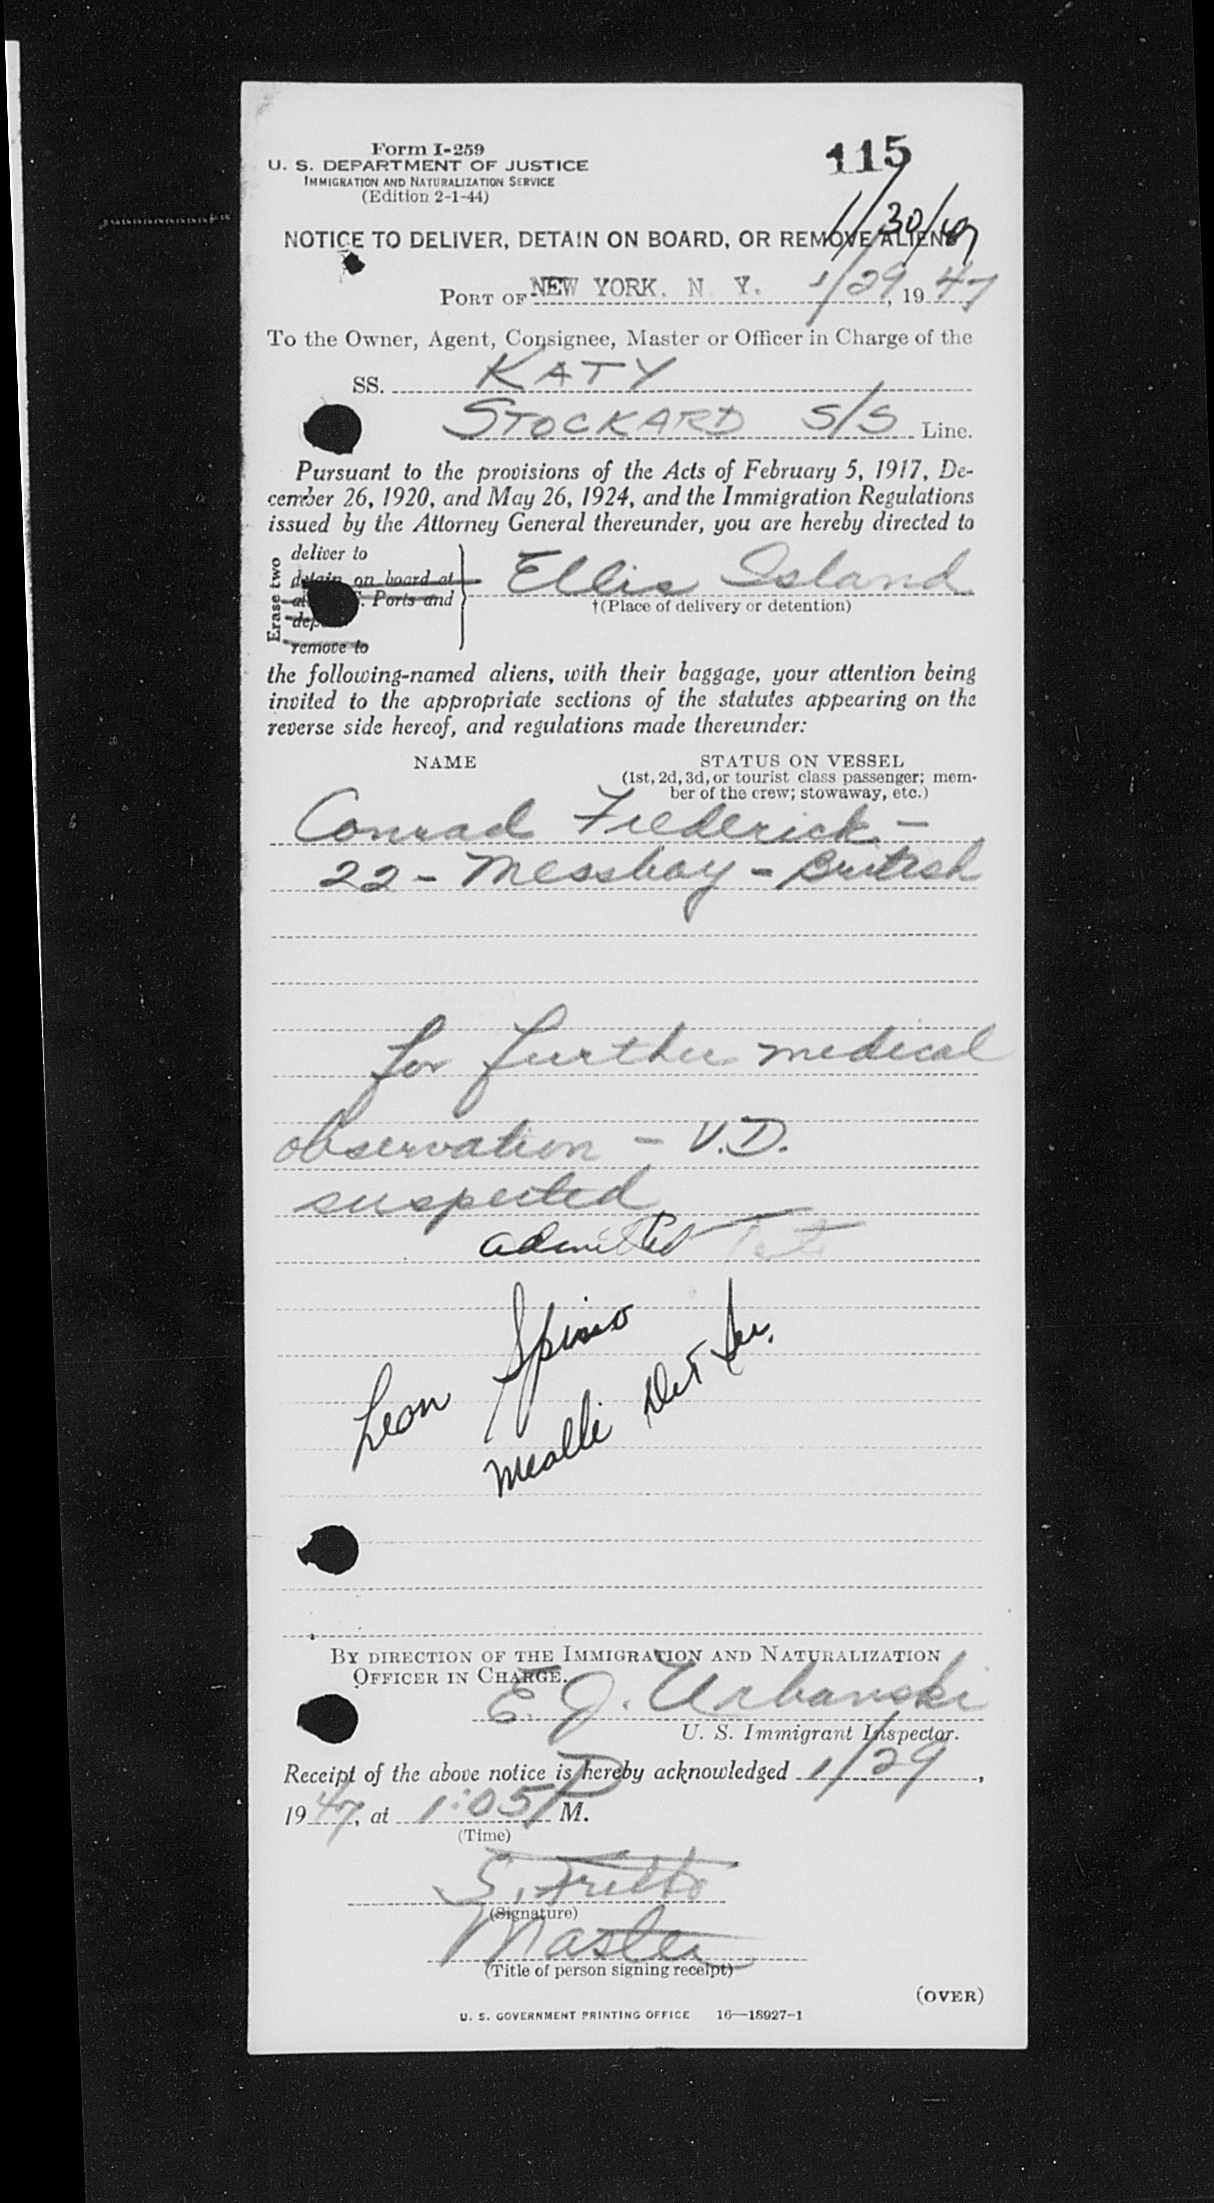 Form I-259
U. S. DEPARTMENT OF JUSTICE
IMMIGRATION AND NATURALIZATION SERVICE
(Edition 2-1-44)
115
1/30/47
NOTICE TO DELIVER, DETAIN ON BOARD, OR REMOVE ALIENS
PORT OF NEW YORK, N. Y. 1/29, 1947
To the Owner, Agent, Consignee, Master or Officer in Charge of the
SS. KATY
STOCKARD S/S Line.
Pursuant to the provisions of the Acts of February 5, 1917, De-
cember 26, 1920, and May 26, 1924, and the Immigration Regulations
issued by the Attorney General thereunder, you are hereby directed to
Erase two
deliver to
detain on board at
Ports and
remove to
Ellis Island
†(Place of delivery or detention)
the following-named aliens, with their baggage, your attention being
invited to the appropriate sections of the statutes appearing on the
reverse side hereof, and regulations made thereunder:
NAME STATUS ON VESSEL
(1st, 2d, 3d, or tourist class passenger; mem-
ber of the crew; stowaway, etc.)
Conrad Frederick -
22 - Messboy - British
for further medical
observation - V.D.
suspected
admitted
Leon Spino
Det
BY DIRECTION OF THE IMMIGRATION AND NATURALIZATION
OFFICER IN CHARGE.
E. J. Urbanski
U. S. Immigrant Inspector.
Receipt of the above notice is hereby acknowledged 1/29,
1947, at 1:05 P M.
(Time)
S.
(Signature)
Master
(Title of person signing receipt)
(OVER)
U. S. GOVERNMENT PRINTING OFFICE 16—18927-1